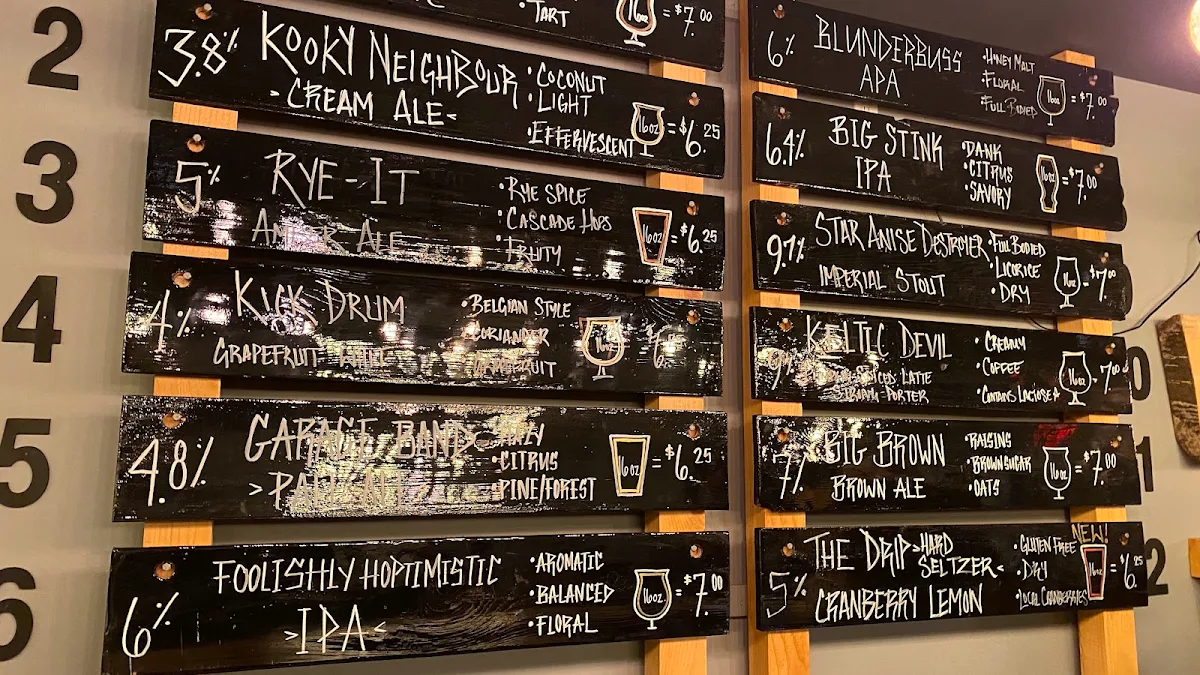 • TART
= $7.00
2
3.8%
KOOKY NEIGHBOUR
- CREAM ALE -
• COCONUT
• LIGHT
• EFFERVESCENT
16oz = $6.25
3
5%
RYE-IT
AMBER ALE
• RYE SPICE
• CASCADE HOPS
• FRUITY
16oz = $6.25
4
4%
KICK DRUM
GRAPEFRUIT
• BELGIAN STYLE
• CORIANDER
• GRAPEFRUIT
16oz
$6.
5
4.8%
GARAGE BAND
> PALE ALE
• CITRUS
• PINE/FOREST
16oz = $6.25
6
6%
FOOLISHLY HOPTIMISTIC
>IPA<
• AROMATIC
• BALANCED
• FLORAL
16oz = $7.00
6%
BLUNDERBUSS
APA
• HONEY MALT
• FLORAL
• FULL BODIED
16oz = $7.00
6.4%
BIG STINK
IPA
• DANK
• CITRUS
• SAVORY
16oz = $7.00
9.7%
STAR ANISE DESTROYER
IMPERIAL STOUT
• FULL BODIED
• LICORICE
• DRY
16oz = $7.00
0
KELTIC DEVIL
SPICED LATTE
PORTER
• CREAMY
• COFFEE
• CONTAINS LACTOSE
16oz = 7.00
1
7%
BIG BROWN
BROWN ALE
• RAISINS
• BROWN SUGAR
• OATS
16oz = $7.00
2
5%
THE DRIP >HARD
SELTZER<
CRANBERRY LEMON
• GLUTEN FREE
• DRY
• LOCAL CRANBERRIES
NEW!
16oz = $6.25